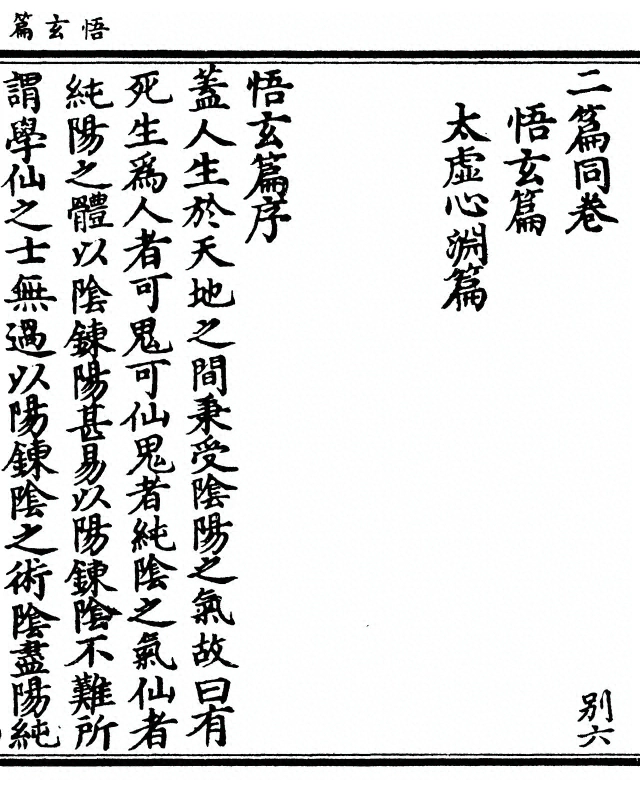 悟玄篇
二篇同卷
別六
悟玄篇
太虛心淵篇
悟玄篇序
蓋人生於天地之間秉受陰陽之氣故曰有
死生爲人者可鬼可仙鬼者純陰之氣仙者
純陽之體以陰鍊陽甚易以陽鍊陰不難所
謂學仙之士無過以陽鍊陰之術陰盡陽純